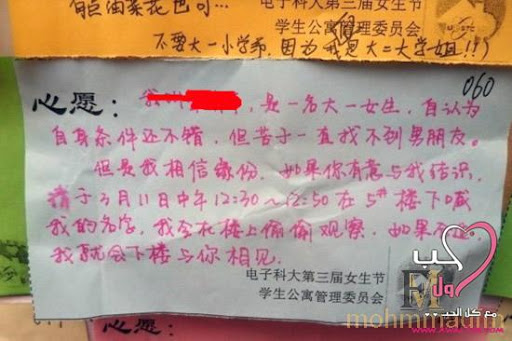 电子科大第三届女生节
不要大一小学弟,因为俺是大二大学姐!!)
学生公寓管理委员会
060
心愿:
是一名大一女生,自认为
自身条件还不错,但苦于一直找不到男朋友。
但是我相信缘份,如果你有意与我结识,
请于3月11日中午12:30~12:50在5#楼下喊
我的名字,我会在楼上偷偷观察,如果
我就会下楼与你相见。
电子科大第三届女生节
学生公寓管理委员会
心愿:
حب
مع كل الحب
mohmmadim